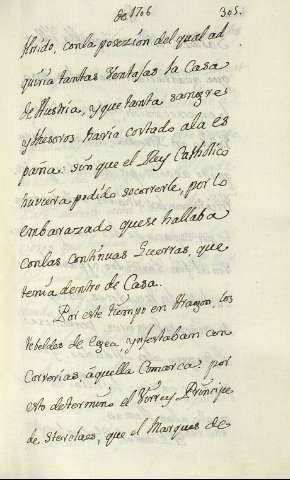 de 1706
305.
florido, con la posezion del qual ad
quiria tantas Ventajas la Casa
de Austria, y que tanta sangre
y thesoros havia costado a la es
paña: sin que el Rey Catholico
huviera podido socorrerle, por lo
embarazado que se hallaba
con las continuas Guerras, que
tenia dentro de Casa.
Por este tiempo en Aragon, los
rebeldes de Egea, ynfestaban con
Correrias, aquella Comarca; por
esto determino el Virrey Principe
de Sterclaes, que el Marques de